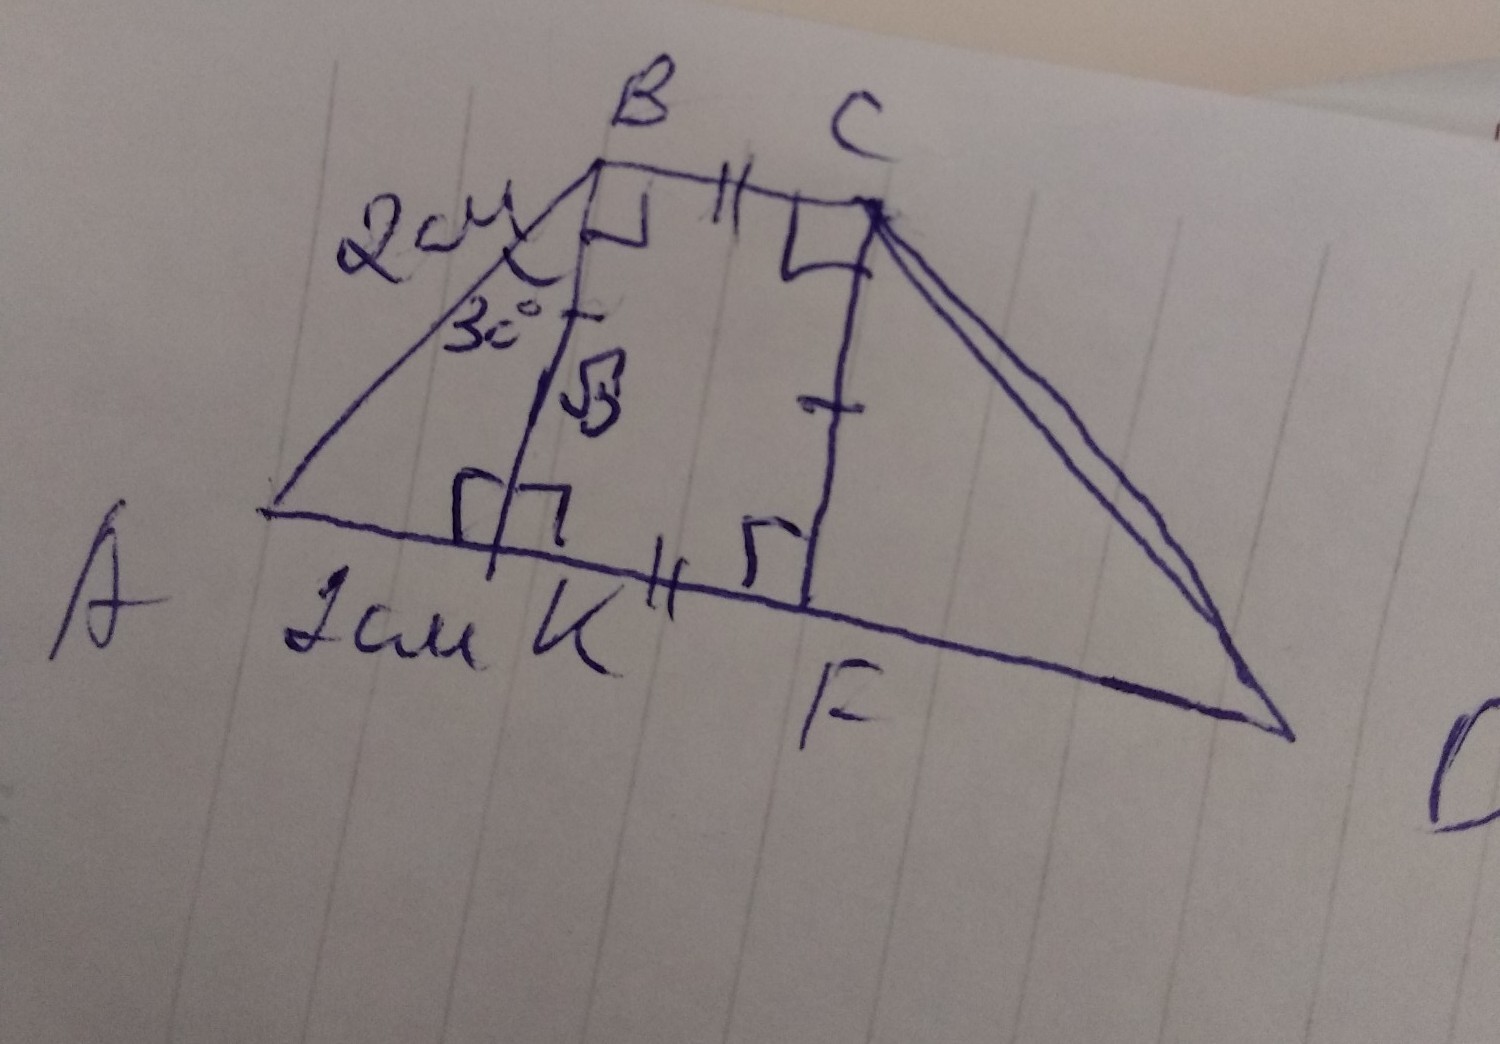 B
C
2 см
30°
√3
A
1 см
K
F
D